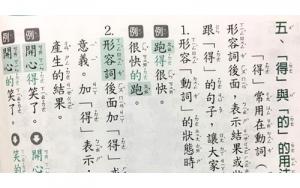 五、「得」與「的」的用法
「得」常用在動詞（
形容詞後面，表示結果或
跟「得」的句子，讓大家
1. 形容「動詞」的狀態時
例：跑得很快。
例：很快的跑。
2. 形容詞後面加「得」
意義。加「得」表示，
產生的結果。
例：開心得笑了。
例：開心的笑了。